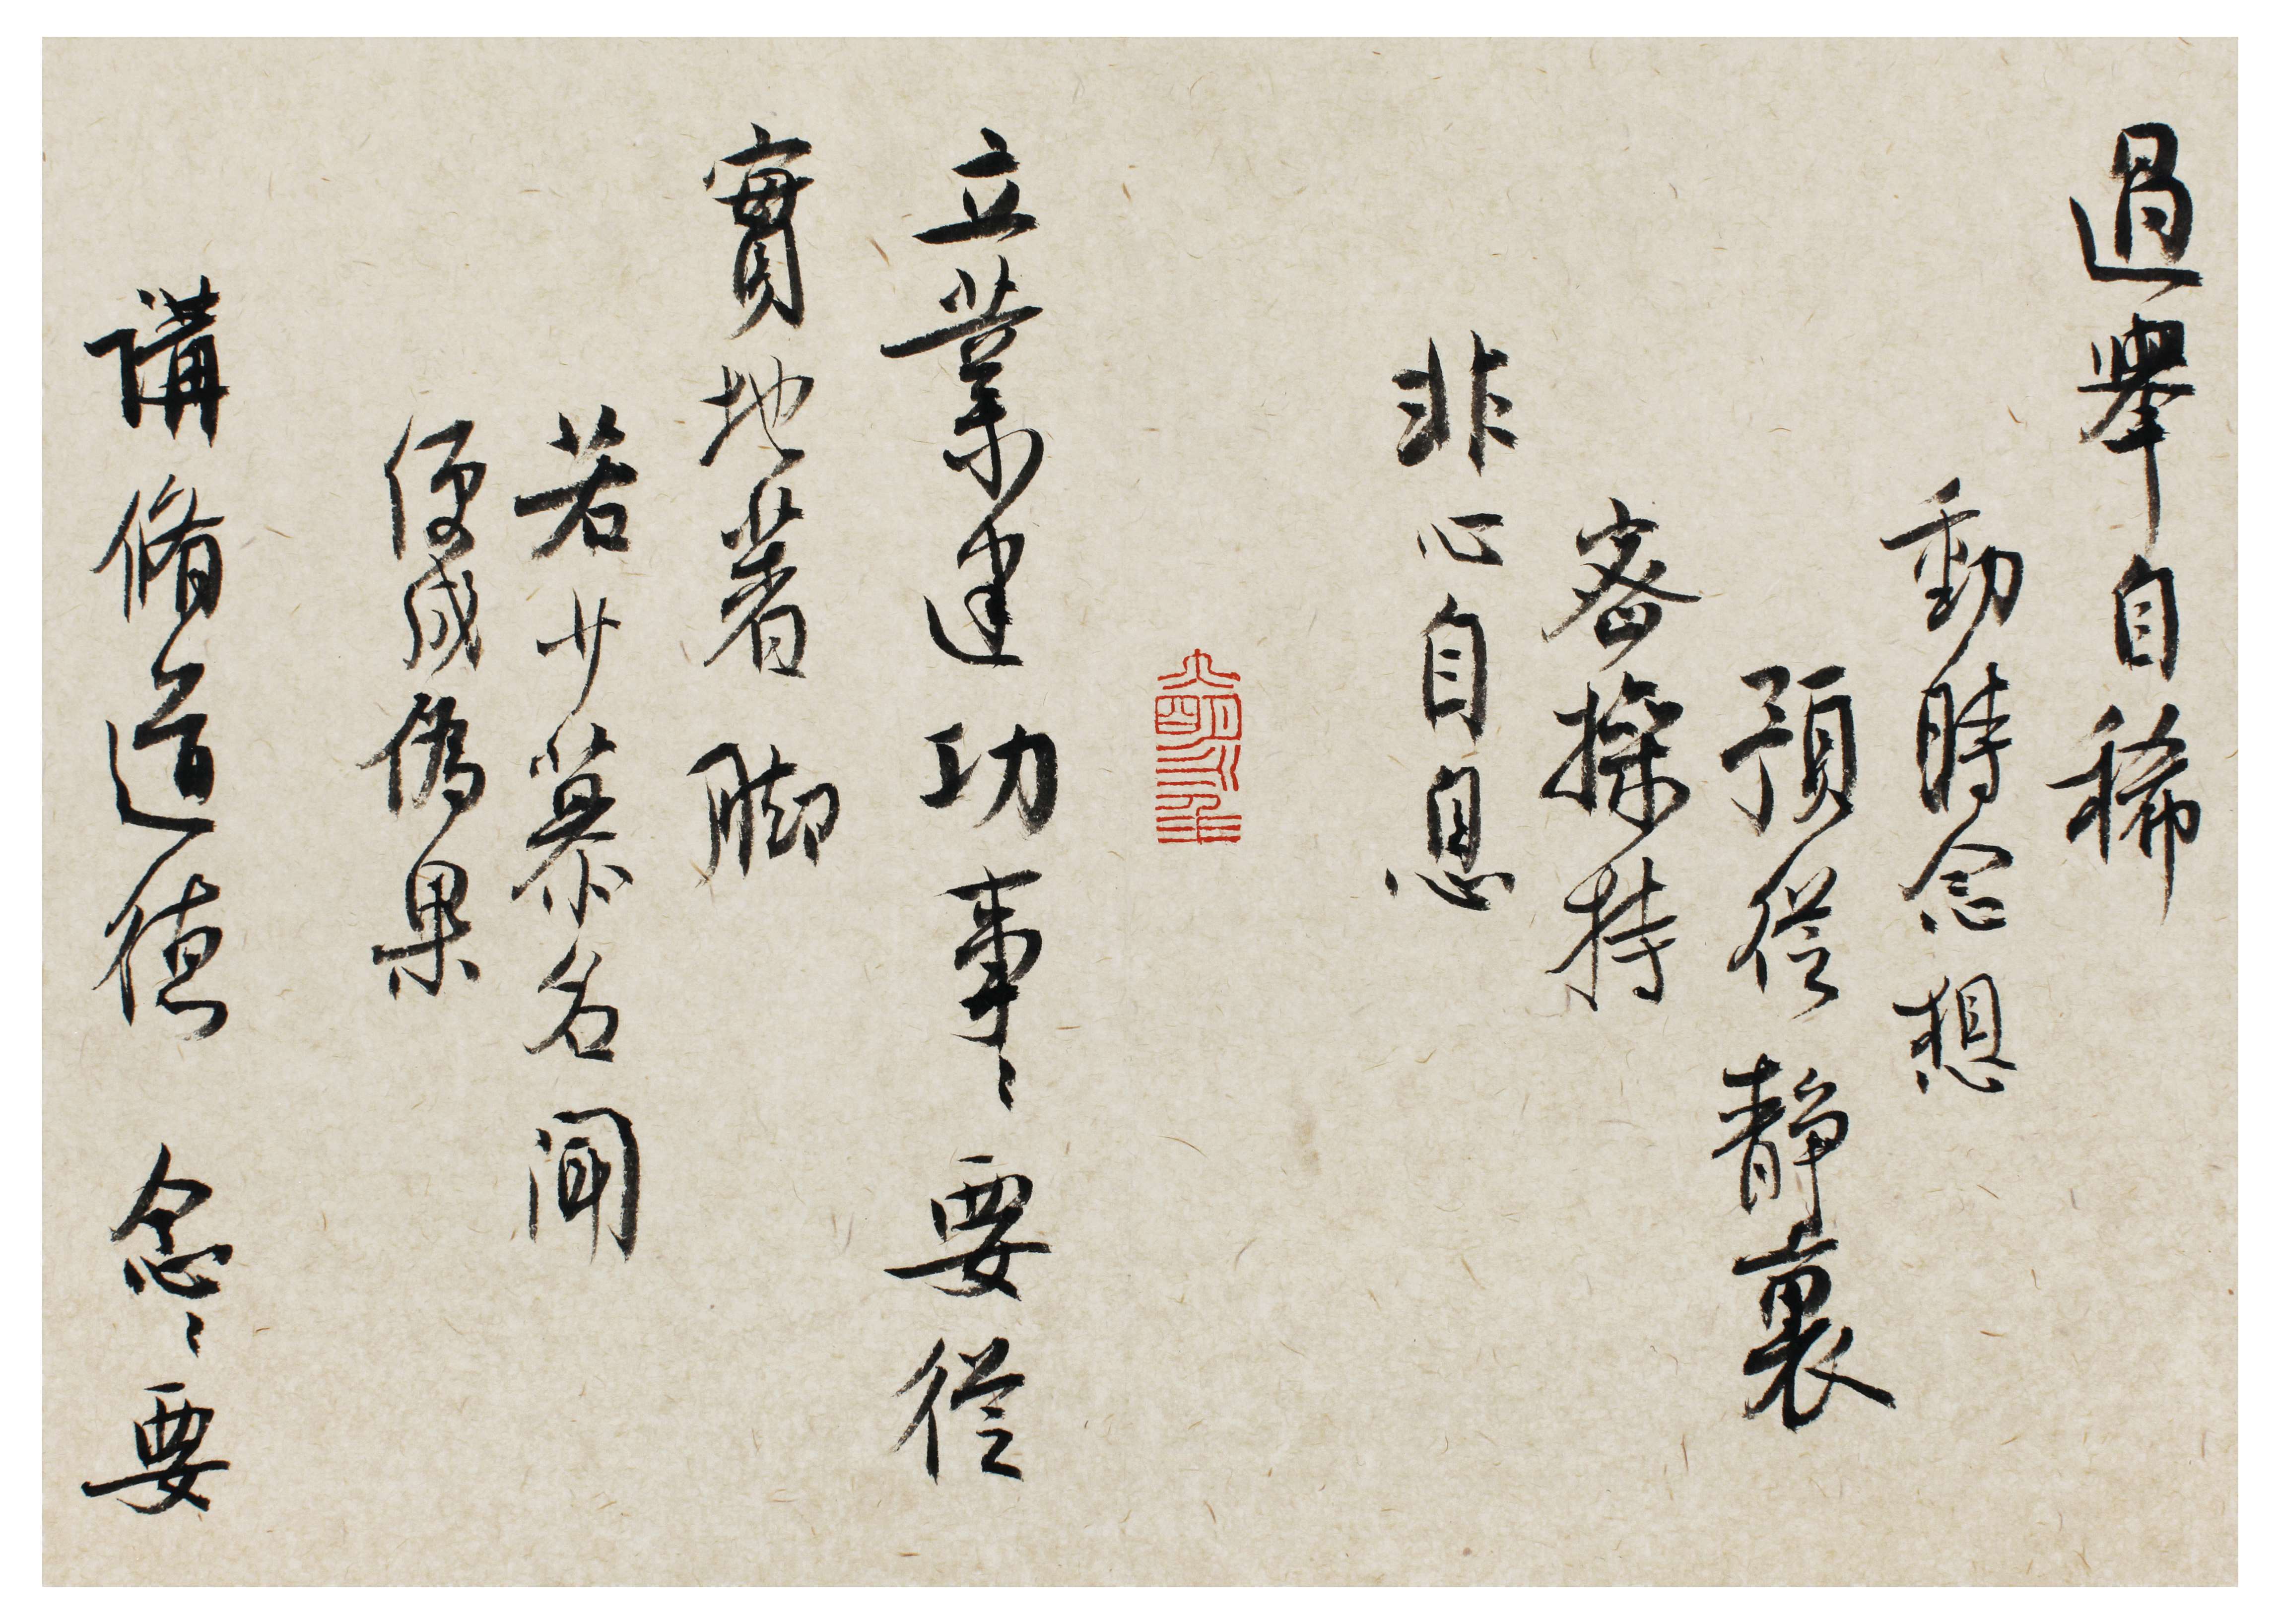 過舉自稀
動時念想
預從靜裏
密操持
非心自息
立業建功事〻要從
實地著腳
若少慕名聞
便成偽果
講脩道德念〻要